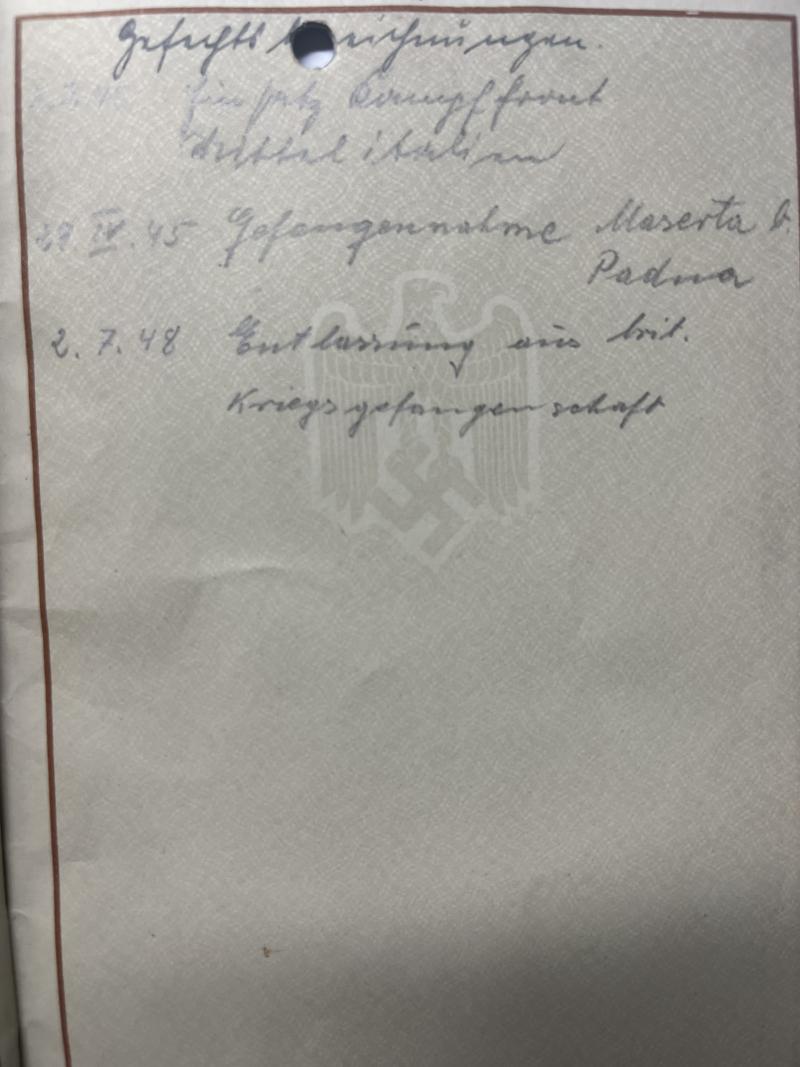 Gefechts eichnungen.
Einsatz Kampffront
Mittelitalien
29 IV. 45 Gefangennahme Maserta b.
Padua
2. 7. 48 Entlassung aus brit.
Kriegsgefangenschaft